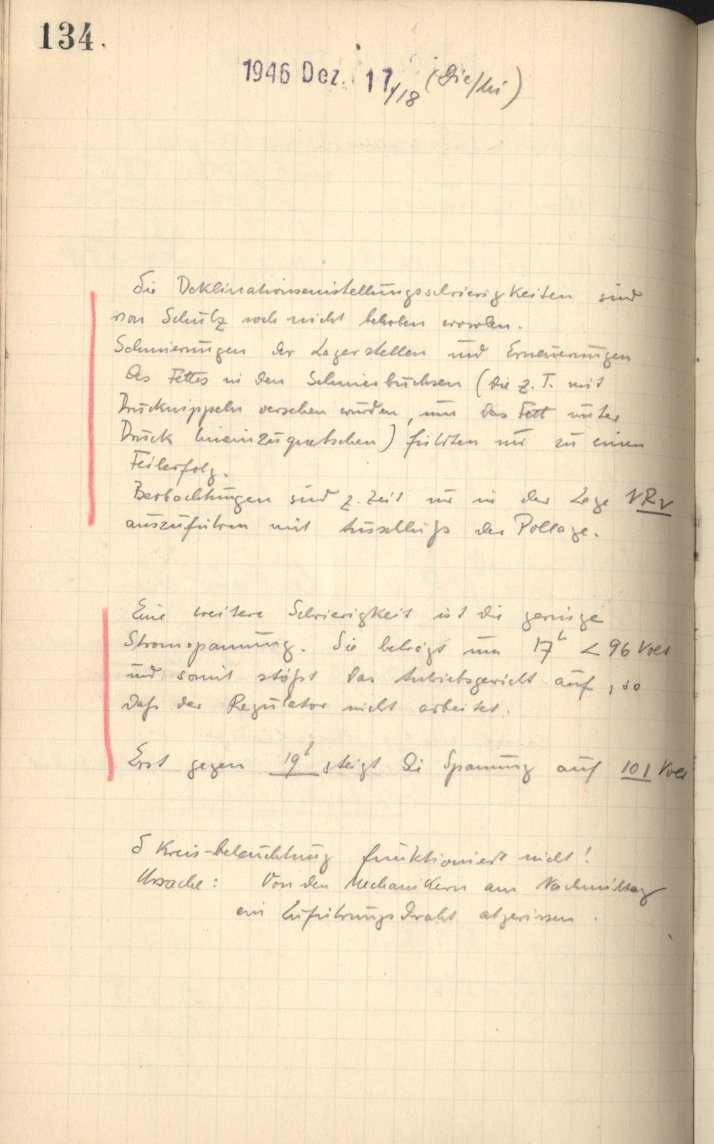 134.
1946 Dez. 17/18
Die Deklinationseinstellungsschwierigkeiten sind
von Schulz noch nicht behoben worden.
Schmierungen der Lagerstellen und Erneuerungen
des Fettes in den Schmierbuchsen (die z. T. mit
Drucknippeln versehen wurden, um das Fett unter
Druck hineinzuquetschen) führten nur zu einem
Teilerfolg.
Beobachtungen sind z. Zeit nur in der Lage
auszuführen mit Ausschluß der Pollage.
Eine weitere Schwierigkeit ist die geringe
Stromspannung. Sie beträgt um 17h < 96 Volt
und somit stößt das Antriebsgewicht auf, so
daß der Regulator nicht arbeitet.
Erst gegen 19h steigt die Spannung auf 101 Volt
δ Kreis-beleuchtung funktioniert nicht!
Ursache: Von den Mechanikern am Nachmittag
ein Zuführungsdraht abgerissen.